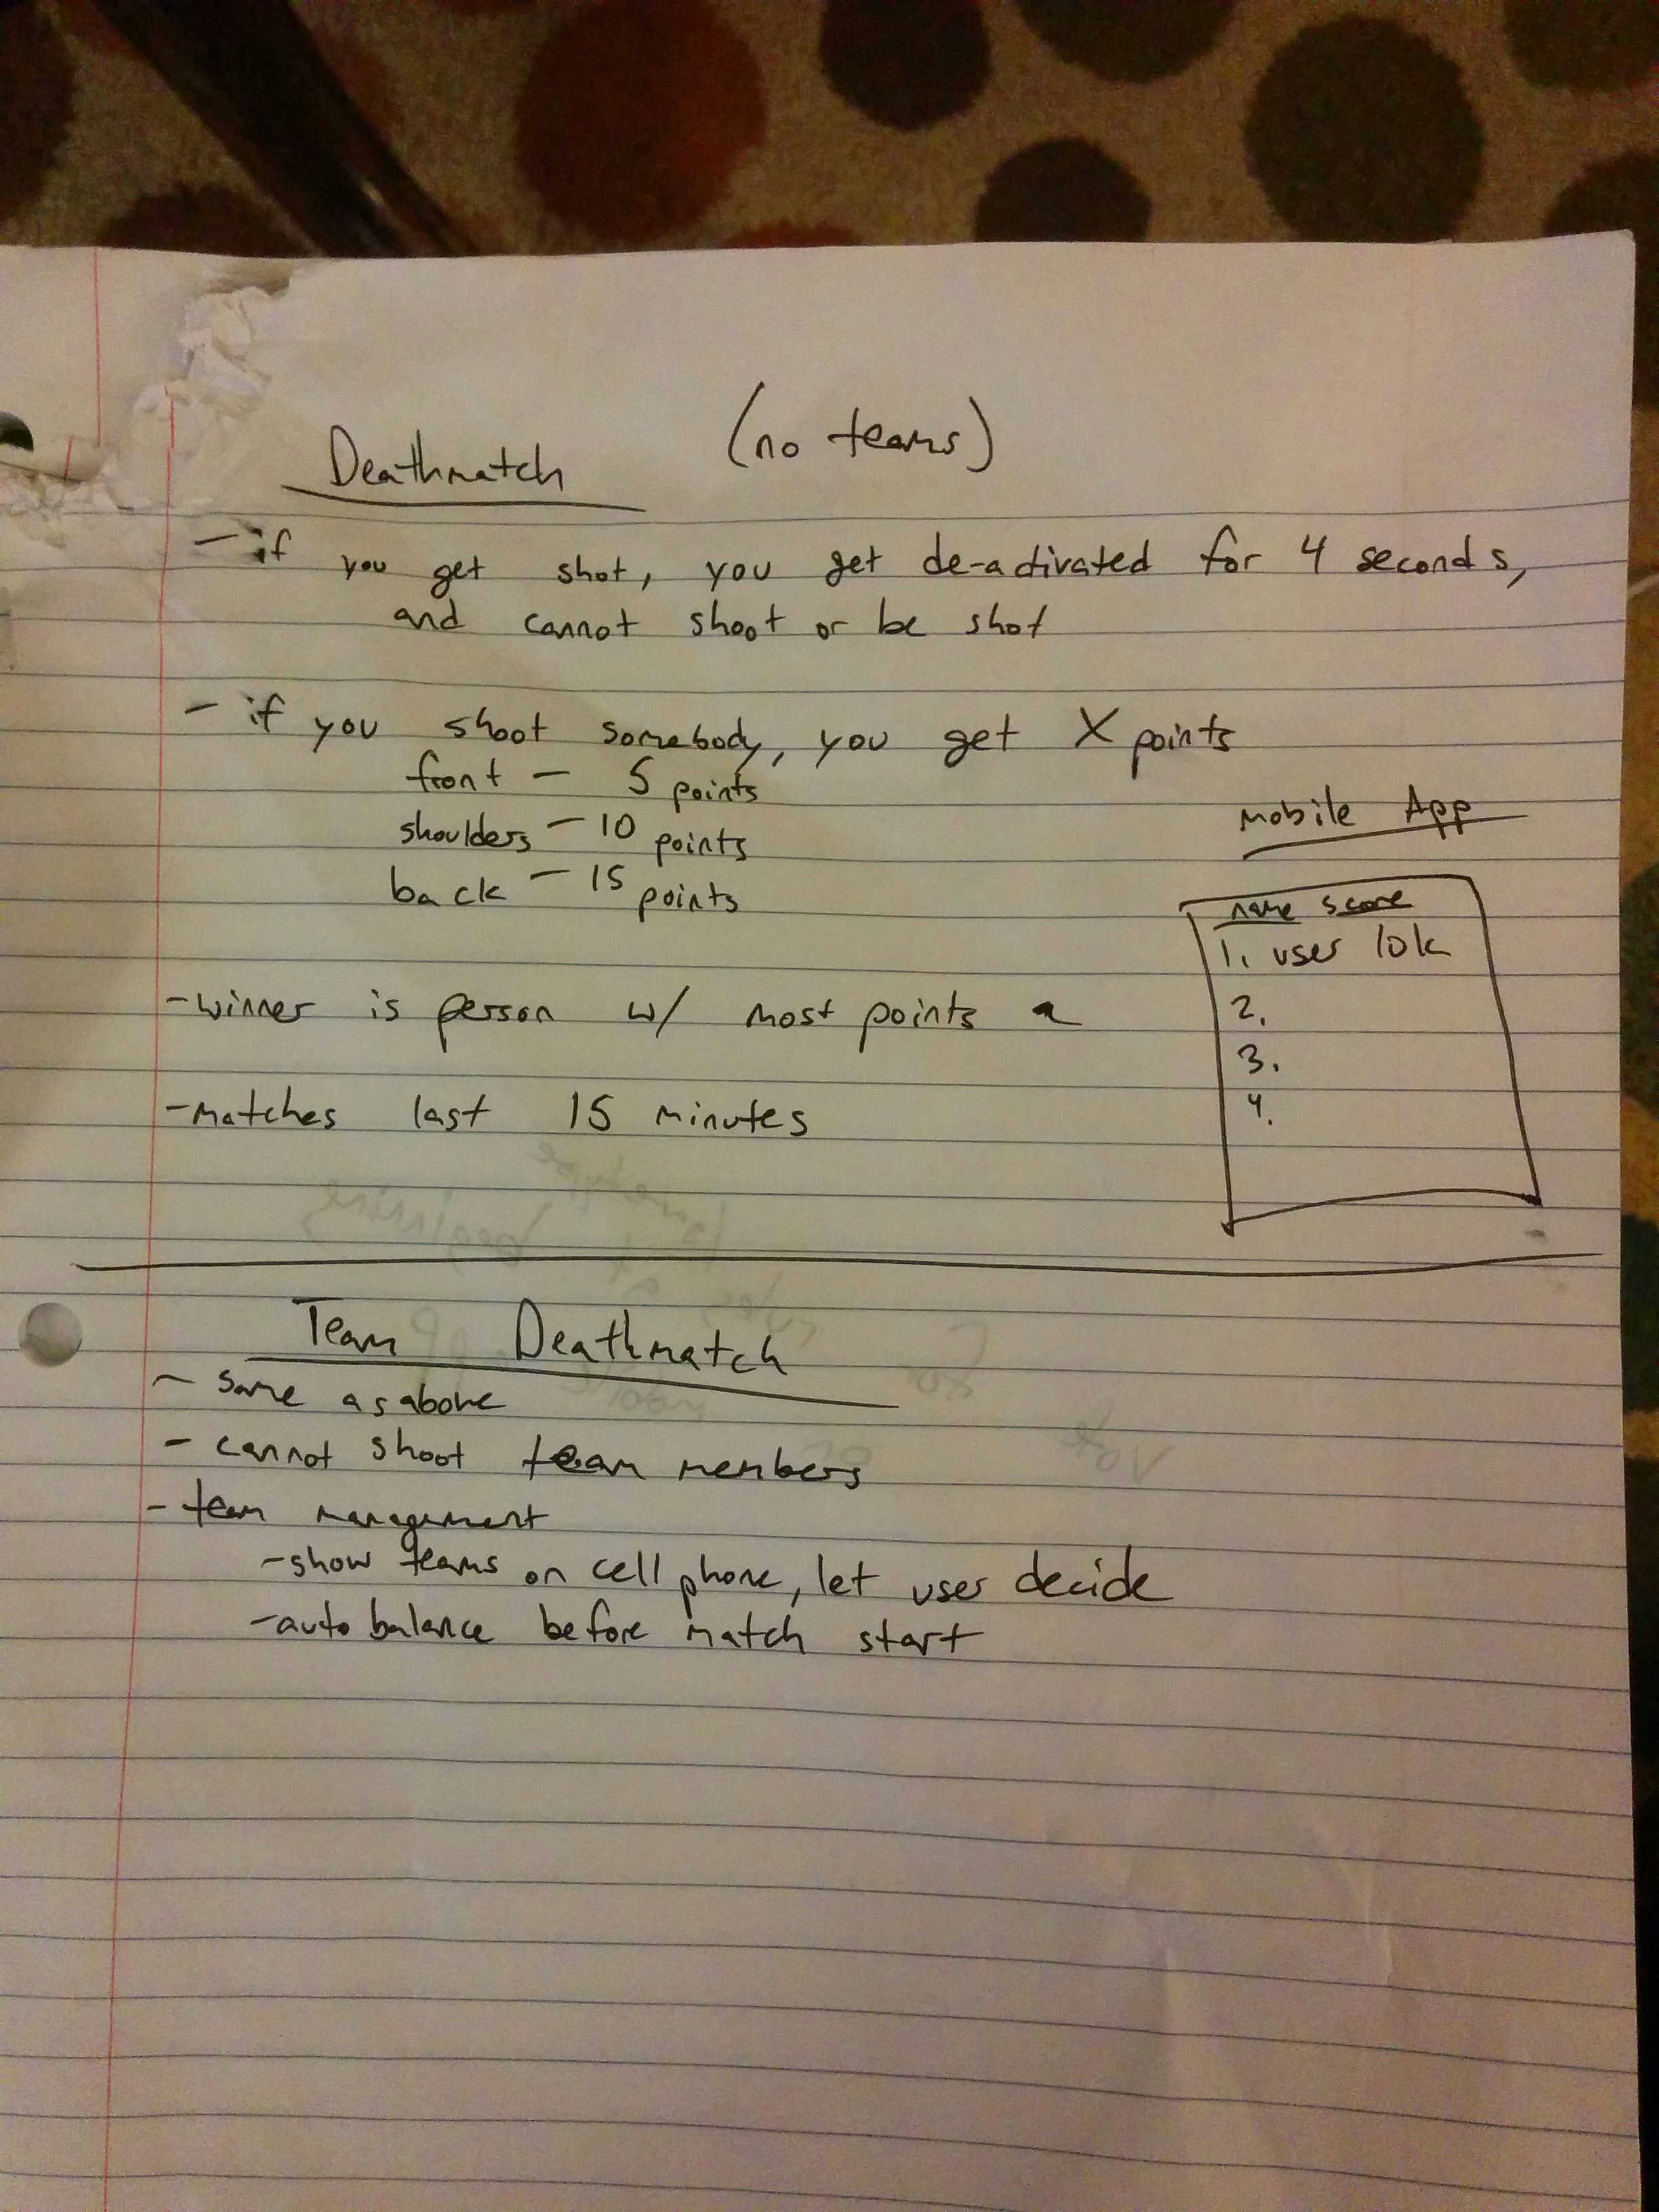 Deathmatch (no teams)
- if you get shot, you get de-activated for 4 seconds,
and cannot shoot or be shot
- if you shoot somebody, you get X points
front - 5 points
shoulders - 10 points
back - 15 points
Mobile App
name score
1. user 10k
2.
3.
4.
- winner is person w/ most points a
- matches last 15 minutes
Team Deathmatch
- same as above
- cannot shoot team members
- team management
- show teams on cell phone, let user decide
- auto balance before match start